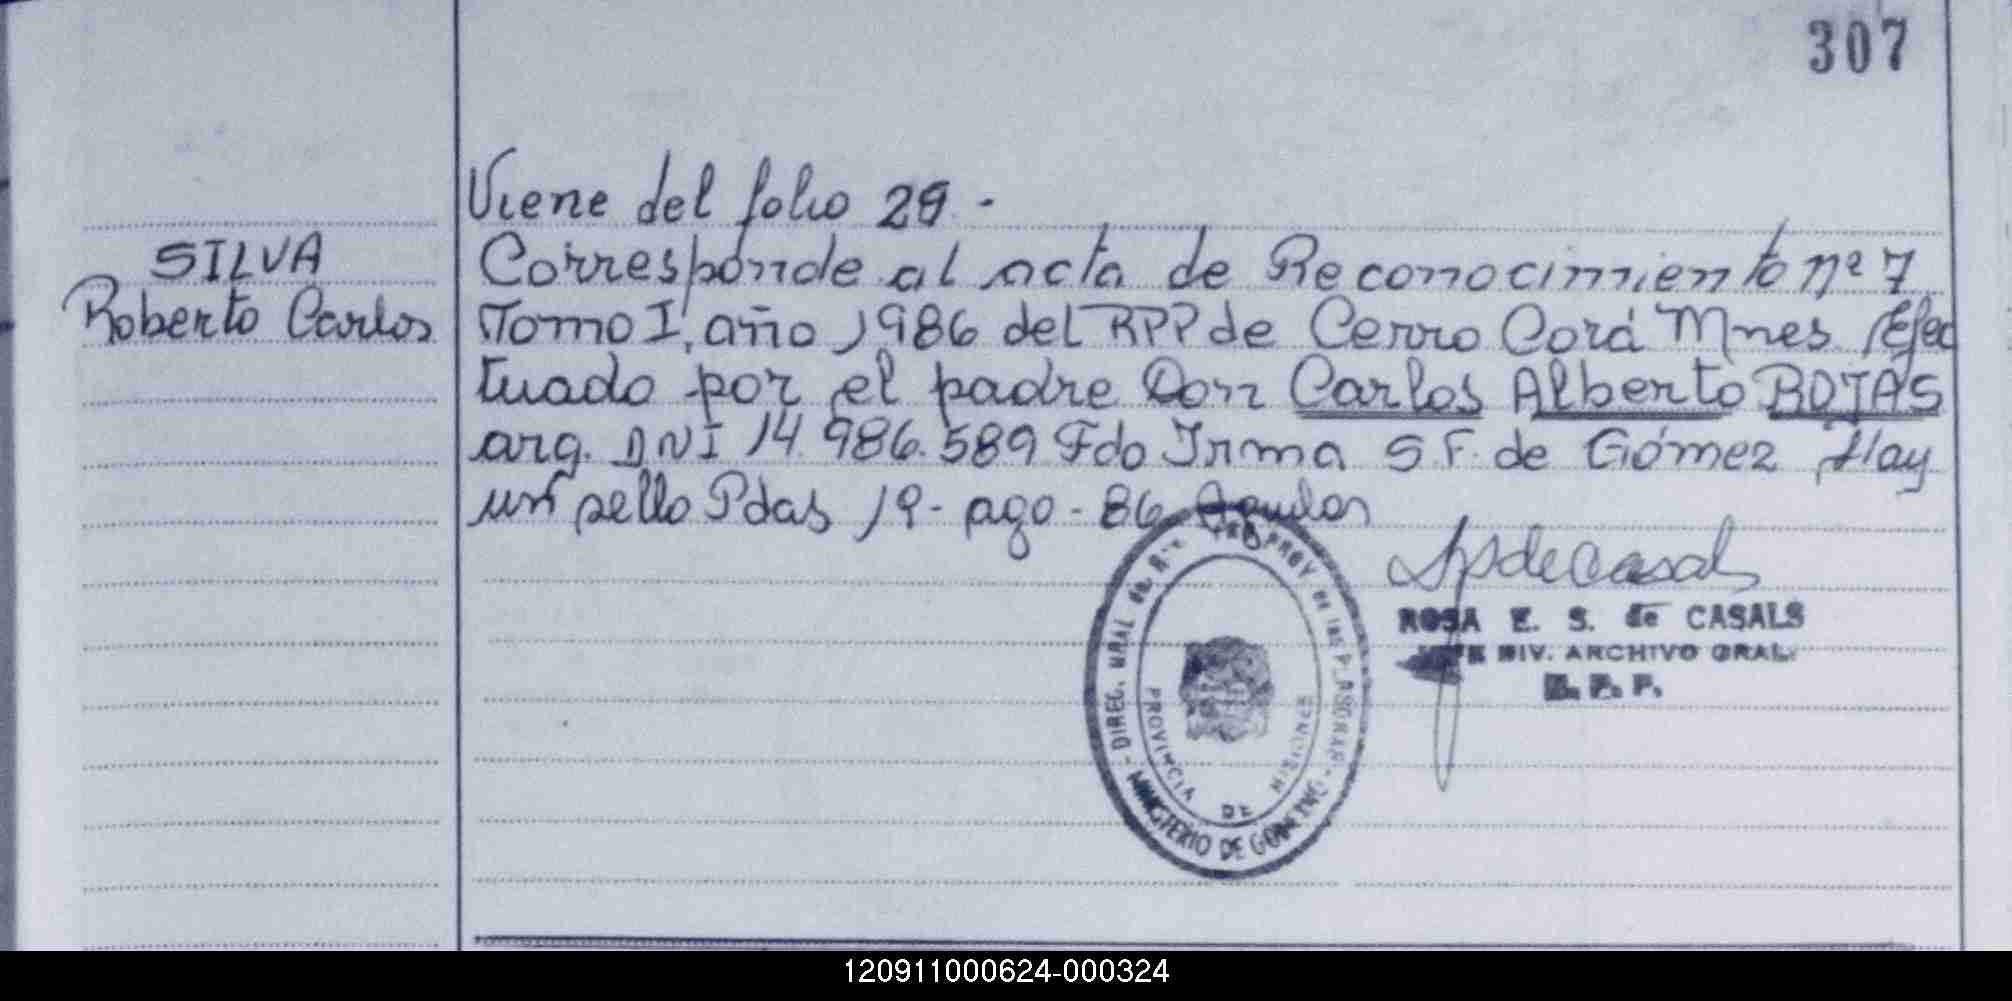 307
Viene del folio 29.-
SILVA
Roberto Carlos
Corresponde al acta de Reconocimiento nº 7
Tomo I, año 1986 del RPP de Cerro Corá Mnes /Efec
tuado por el padre Don Carlos Alberto ROJAS
arg. DNI 14.986.589 Fdo Irma S F. de Gómez Hay
un sello Pdas 19- ago - 86
ROSA E. S. de CASALS
DIV. ARCHIVO GRAL.
R. P. P.
DIREC. GRAL de R. PROV de las P.
MINISTERIO DE GOBIERNO
PROVINCIA DE MISIONES
120911000624-000324